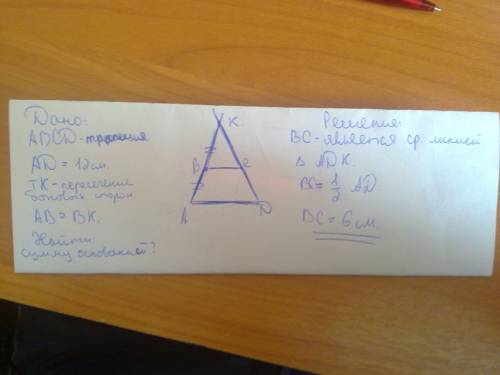 Дано:
ABCD - трапеция
AD = 12 см.
TK - пересечение
боковых сторон
AB = BK.
Найти:
сумму оснований?
K
B
C
A
D
Решение:
BC - является ср. линией
Δ ADK.
BC = 1/2 AD.
BC = 6 см.